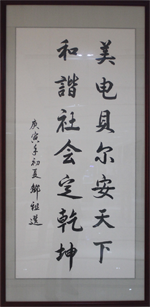 美电贝尔安天下
和諧社会定乾坤
庚寅年初夏鄒祖选